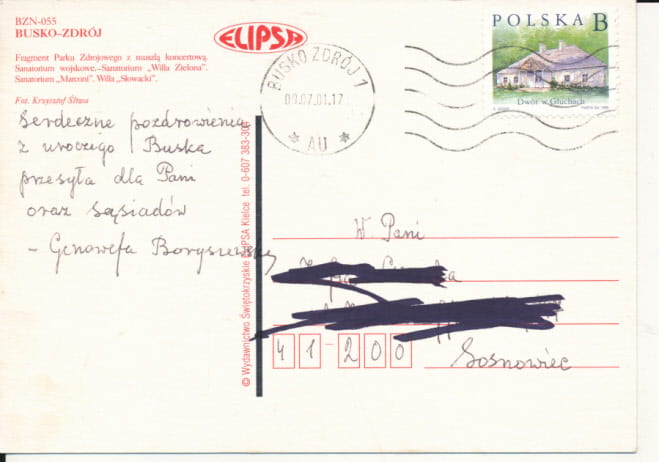 BZN-055
BUSKO-ZDRÓJ
Fragment Parku Zdrojowego z muszlą koncertową.
Sanatorium wojskowe.-Sanatorium "Willa Zielona".
Sanatorium "Marconi". Willa "Słowacki".
Fot. Krzysztof Śliwa
ELIPSA
BUSKO ZDRÓJ 1
09.07.01.17
* AU *
POLSKA B
Dwór w Głuchach
Serdeczne pozdrowienia
z uroczego Buska
przesyła dla Pani
oraz sąsiadów
- Genowefa
© Wydawnictwo Świętokrzyskie ELIPSA Kielce tel. 0-607 383-304
W. Pani
41-200
Sosnowiec